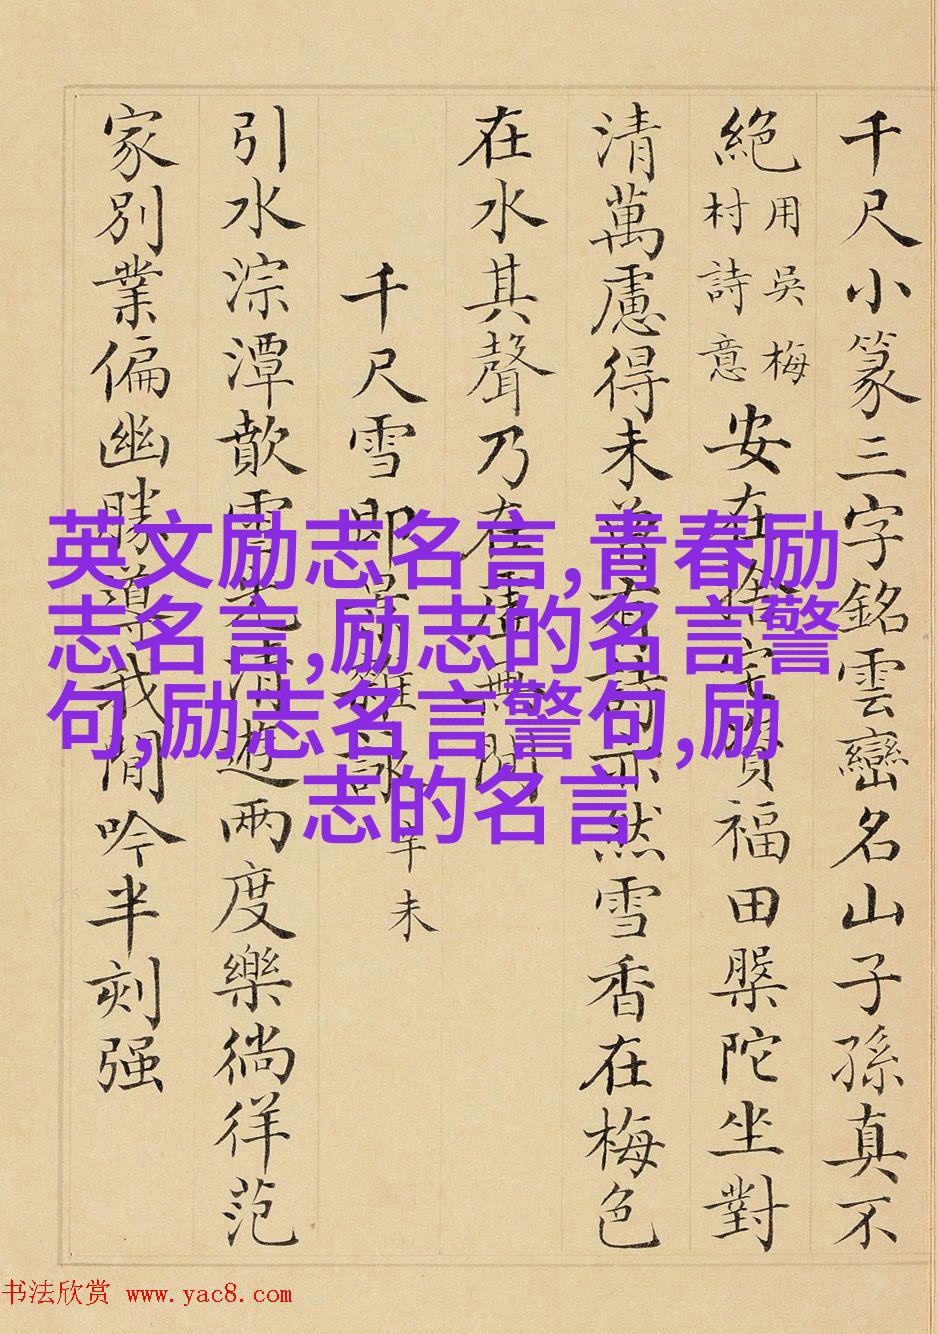 千尺小篆三字銘雲巒名山子孫真不
絶
用吳梅
村詩意
安在捨宅資福田槃陀坐對
清萬慮得未曾有詩亦然雪香在梅色
在水其聲乃在虛無間
千尺雪即景雜詠
辛未
引水淙潭歕雪清遊兩度樂徜徉范
家別業偏幽勝導我閒吟半刻强
英文励志名言,青春励
志名言,励志的名言警
句,励志名言警句,励
志的名言
书法欣赏 www.yac8.com